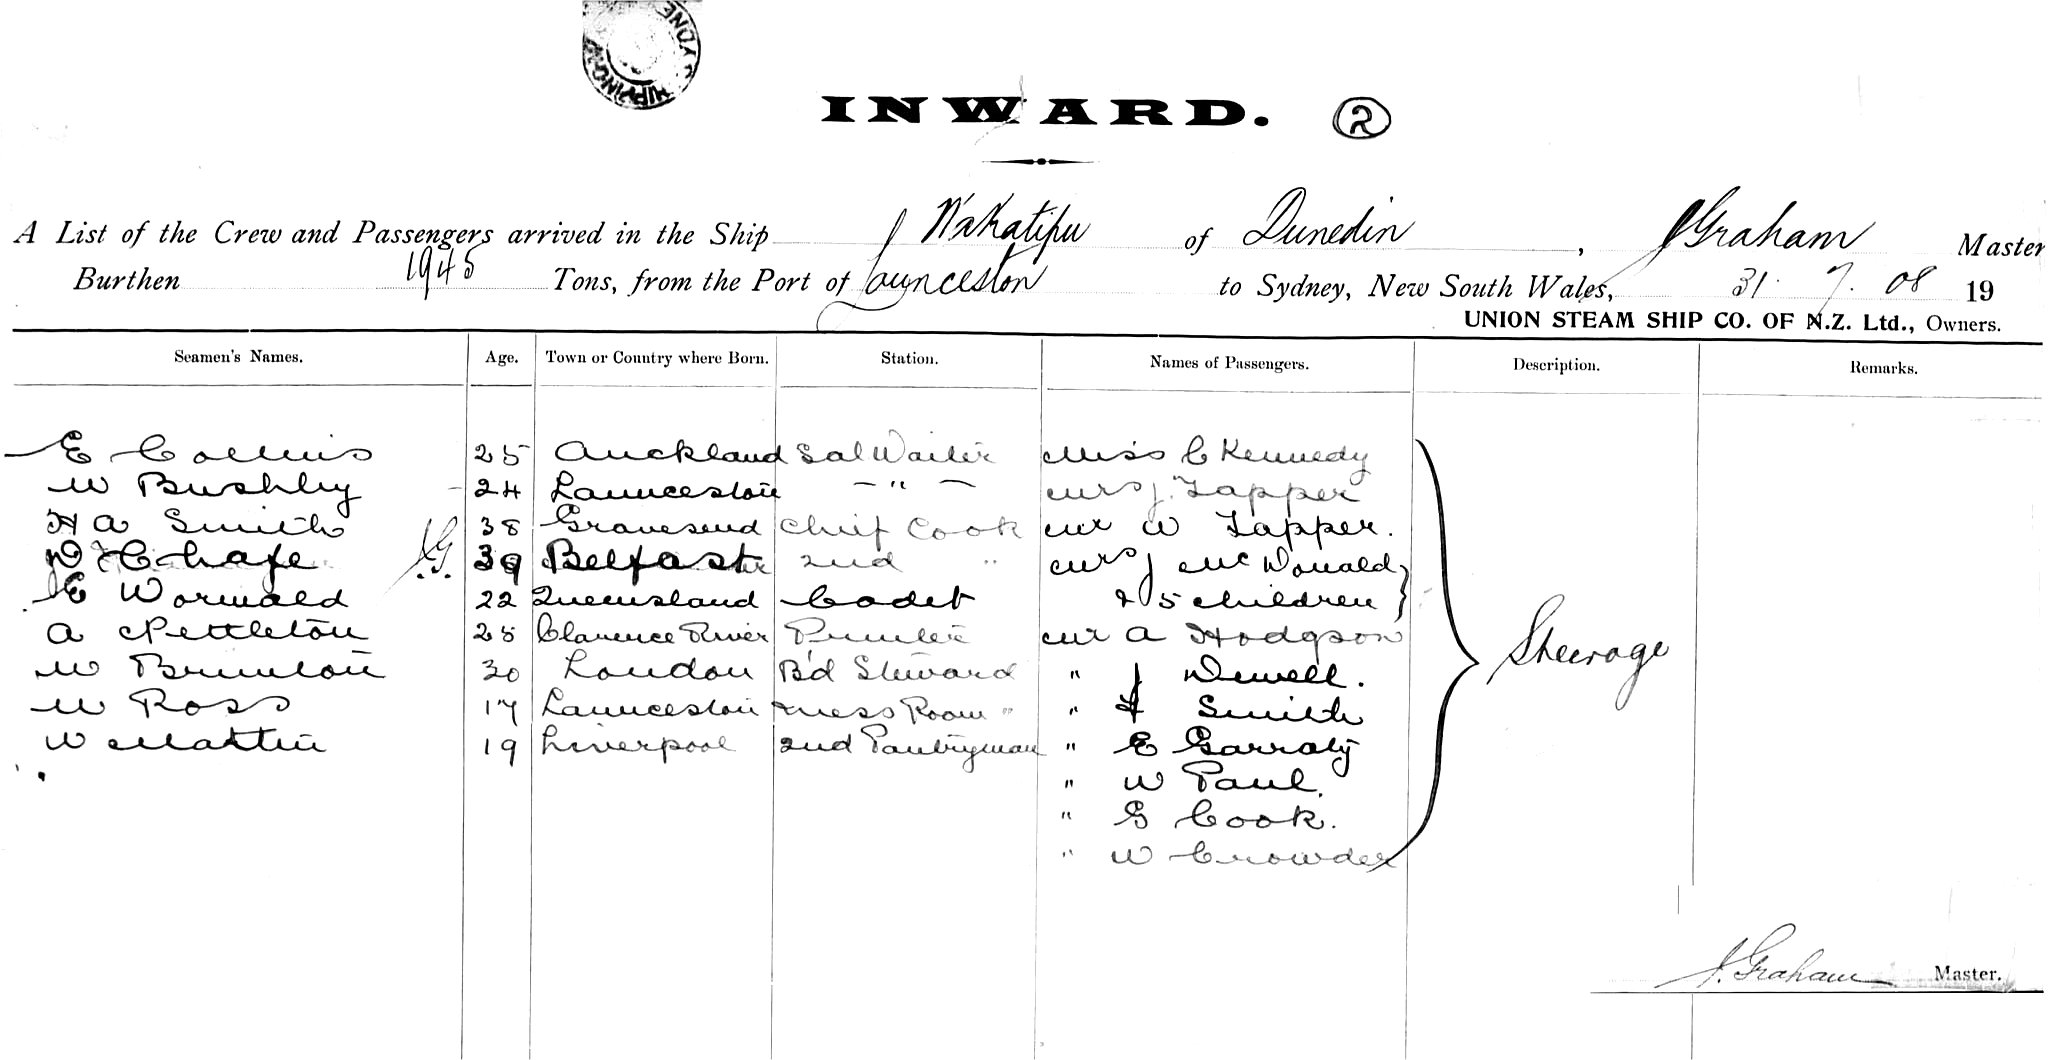 SHIPPING SYDNE
INWARD. 2
A List of the Crew and Passengers arrived in the Ship Wakatipu of Dunedin, J Graham Master
Burthen 1945 Tons, from the Port of Launceston to Sydney, New South Wales, 31. 7. 08 19
UNION STEAM SHIP CO. OF N.Z. Ltd., Owners.
Seamen's Names. Age. Town or Country where Born. Station. Names of Passengers. Description. Remarks.
E Collins 25 Auckland Sal Waiter Miss C Kennedy
W Bushby 24 Launceston — " — Mrs J. Tapper
H A Smith 38 Gravesend Chief Cook Mr W Tapper.
Chafe J.G. 39 Belfast 2nd " Mrs J McDonald
E Wormald 22 Queensland Cadet & 5 children
A Nettleton 25 Clarence River Steerage
Mr A Hodgson
W Brunton 30 London B'd Steward " J Dewell.
W Ross 17 Launceston Mess Room " " F Smith
W Martin 19 Liverpool 2nd Pantryman " E Garraty
" W Paul.
" G Cook.
" W Crowder
J. Graham Master.